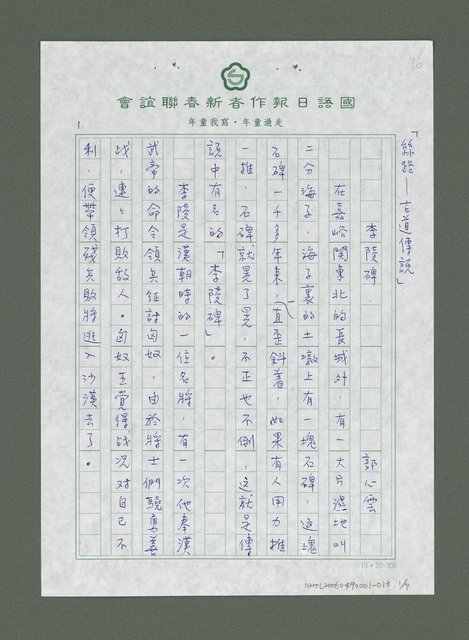 16
國語日報作者新春聯誼會
走過童年·寫我童年
1.
「絲路—古道傳說」
李陵碑. 郭心雲
在嘉峪關東北的長城外，有一大片濕地叫
二分海子，海子裏的土墩上有一塊石碑，這塊
石碑一千多年來，一直歪斜着，如果有人用力推
一推，石碑就晃了晃，不正也不倒，這就是傳
說中有名的「李陵碑」。
李陵是漢朝時的一位名將，有一次他奉漢
武帝的命令領兵征討匈奴，由於將士們驍勇善
战，連々打敗敵人。匈奴王覺得战况对自己不
利，便帶領殘兵敗將逃入沙漠去了。
10×20=200
NMTL20060490001-018. 1/7